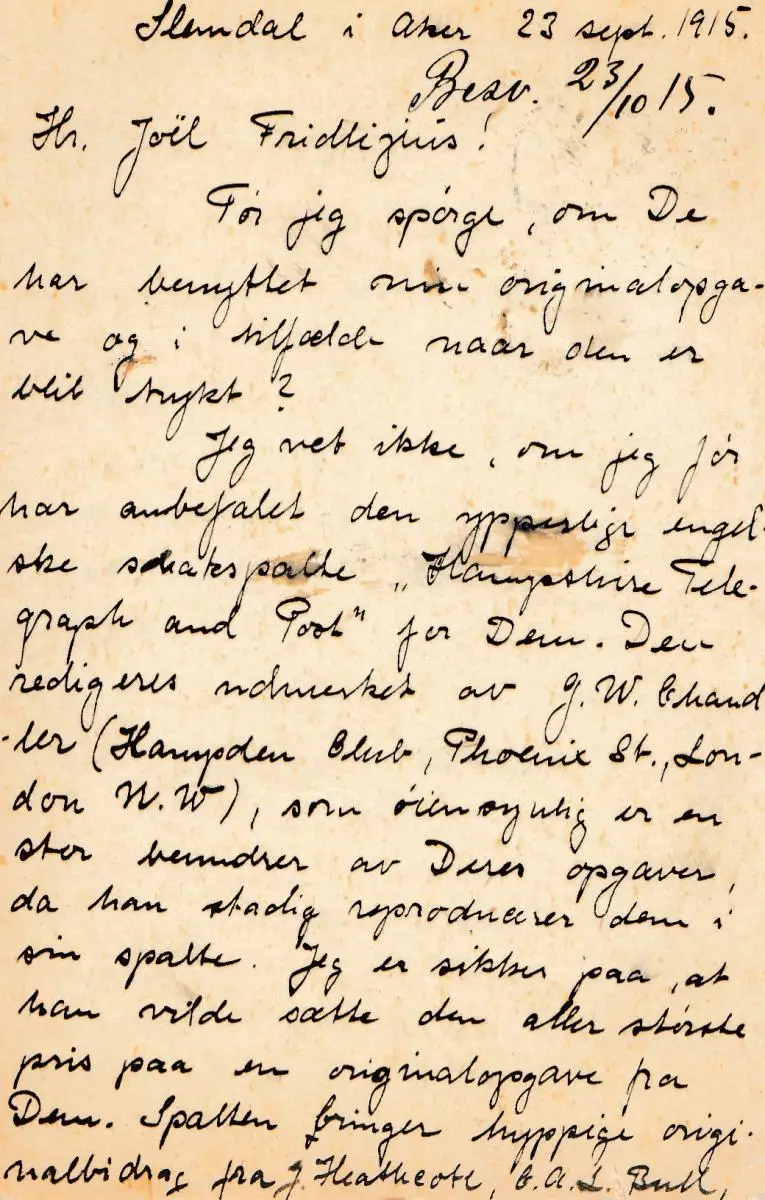 Slemdal i Aker 23 sept. 1915.
Besv. 23/10 15.
Hr. Joël Fridlizius!
Tør jeg spørge, om De
har benyttet min originalopga-
ve og i tilfælde naar den er
blit trykt?
Jeg vet ikke, om jeg før
har anbefalet den ypperlige engel-
ske schakspalte „Hampshire Tele-
graph and Post" for Dem. Den
redigeres udmerket av G. W. Chand
-ler (Hampden Club, Phoenix St., Lon-
don N.W), som øiensynlig er en
stor beundrer av Deres opgaver,
da han stadig reproducerer dem i
sin spalte. Jeg er sikker paa, at
han vilde sætte den aller største
pris paa en originalopgave fra
Dem. Spalten bringer hyppige origi-
nalbidrag fra G. Heathcote, C. A. L. Bull,